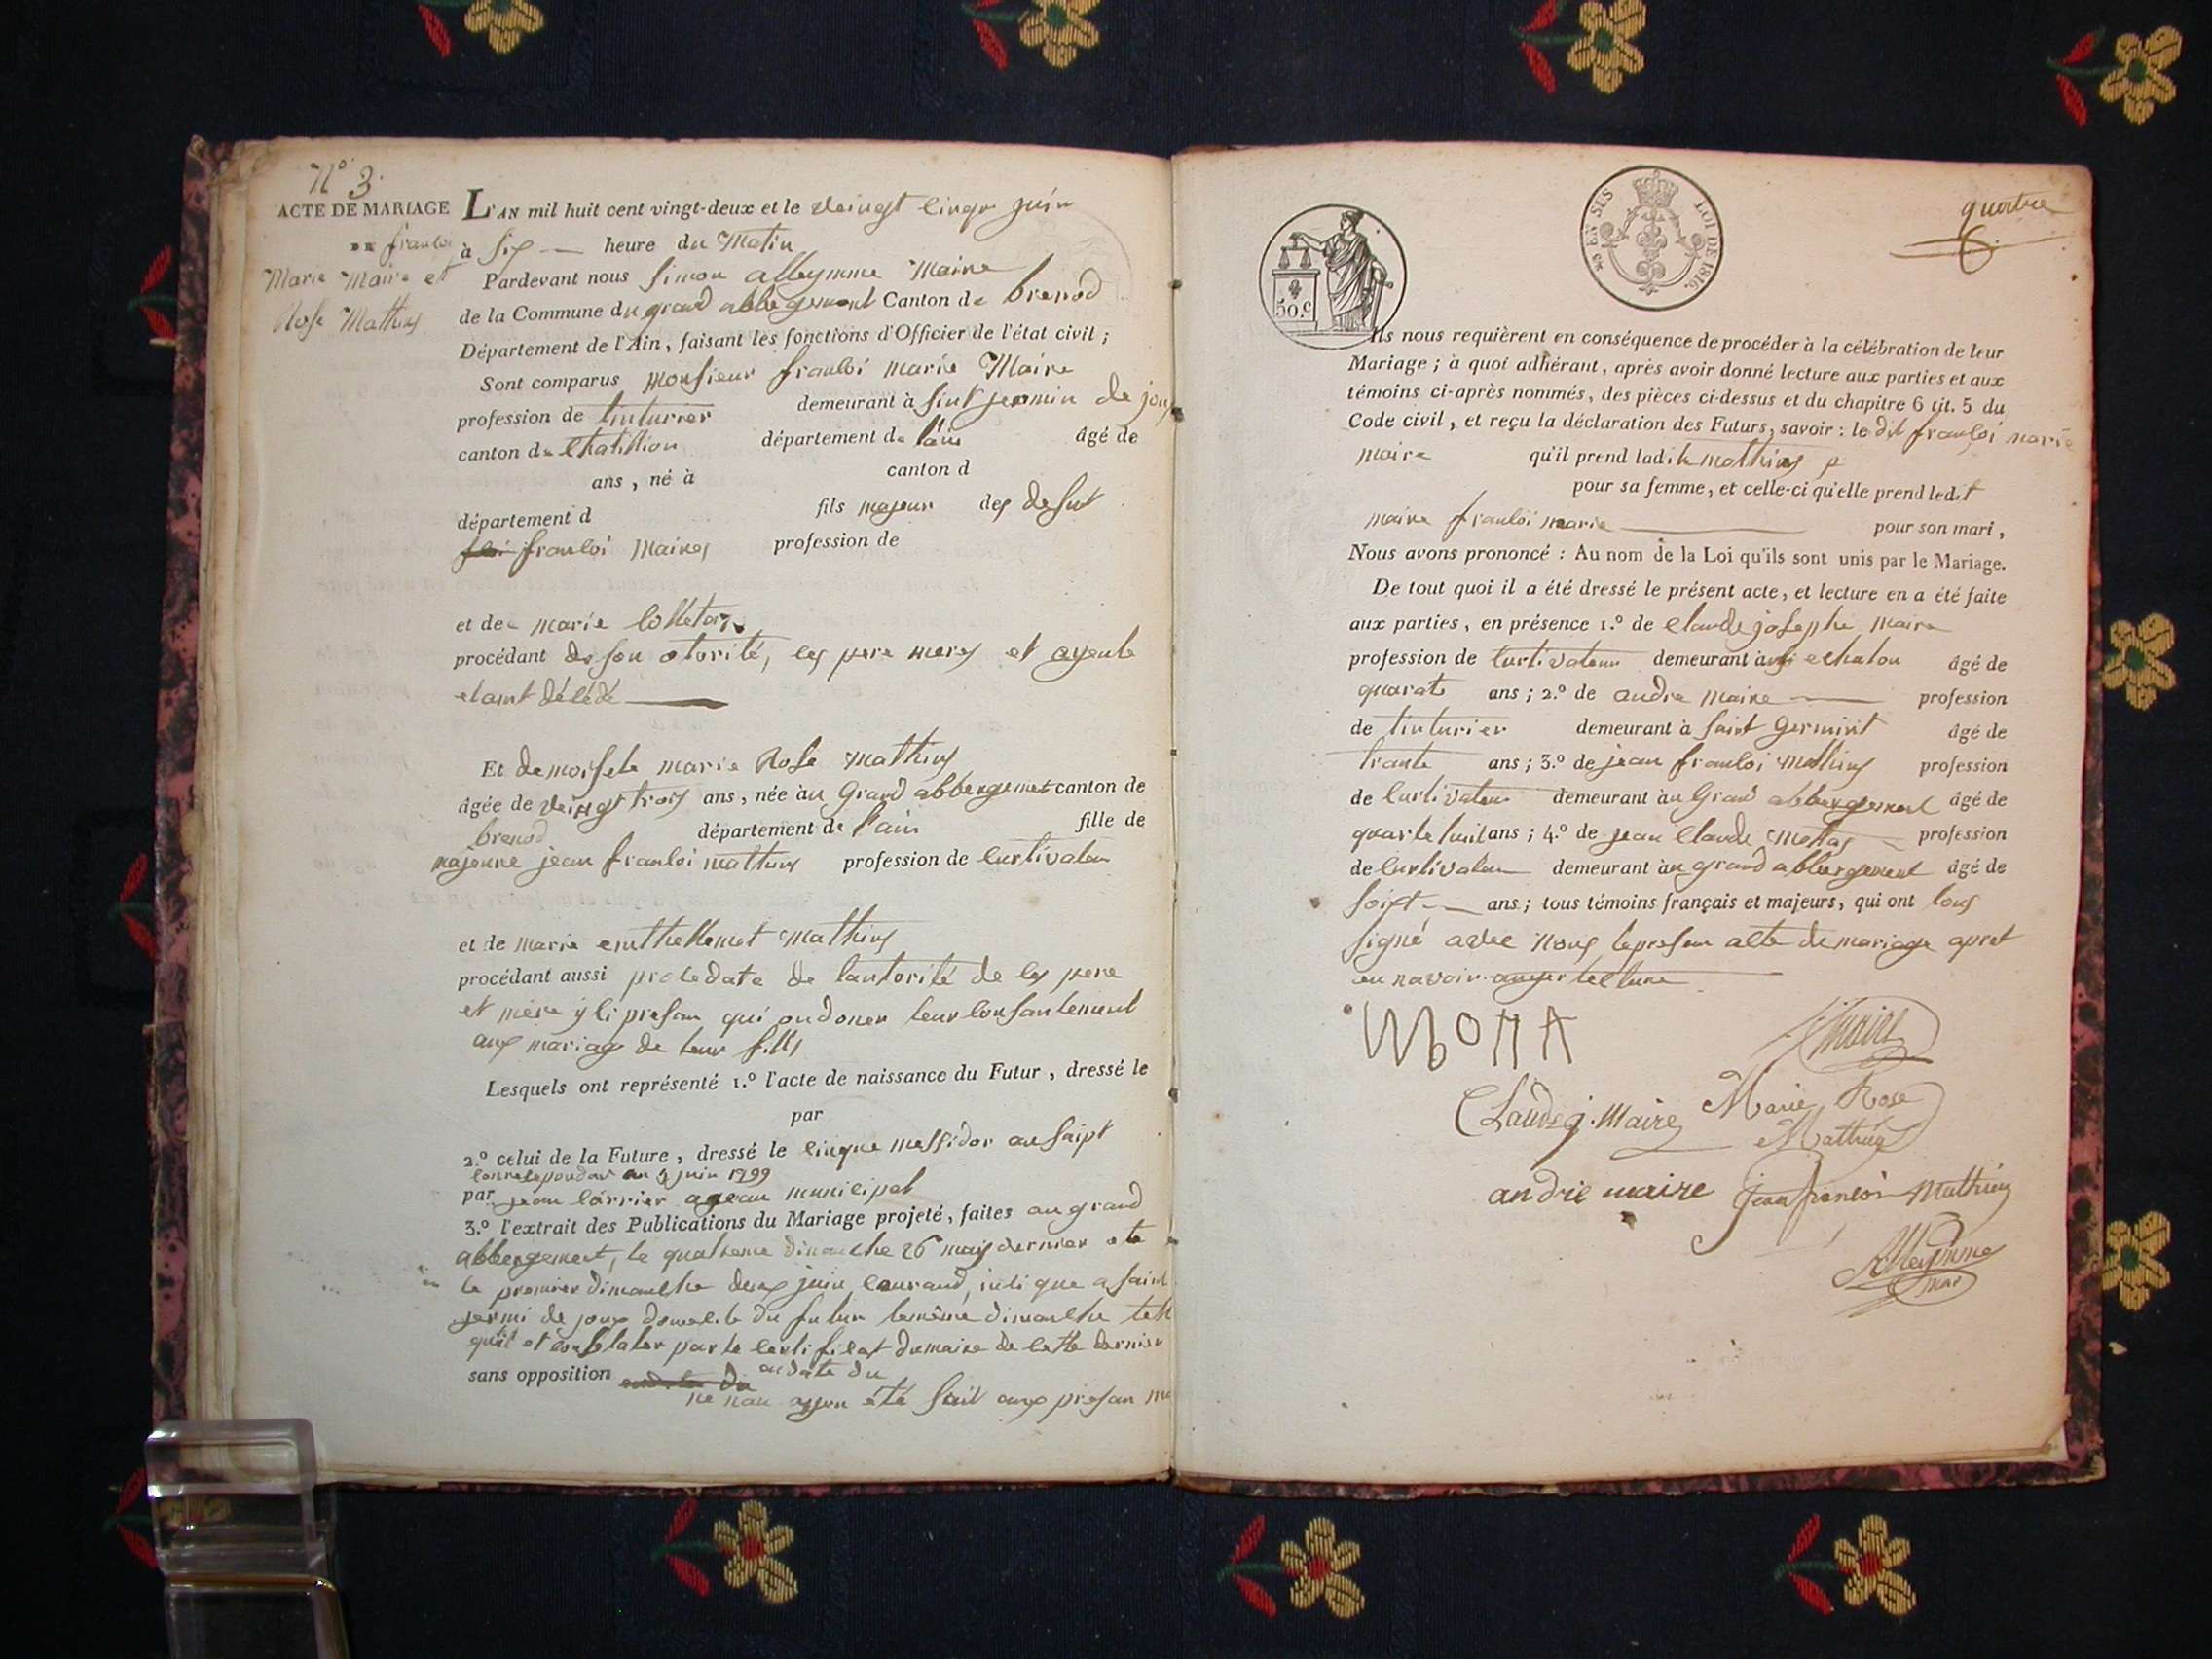 N° 3.
ACTE DE MARIAGE
DE franſoi
Marie Maire et
Rose Mathieux
L'AN mil huit cent vingt-deux et le veingt cinqe juin
à six heure du Matin
Pardevant nous Simon alleymme Maire
de la Commune du grand abbergement Canton de brenod
Département de l'Ain, faisant les fonctions d'Officier de l'état civil;
Sont comparus Monsieur francoi marie Maire
profession de tinturier demeurant à sint jermin de joux
canton de Chatillion département de l'ain âgé de
ans, né à canton d
département d fils majeur des defut
francoi Maires profession de
et de marie
procédant de son otorité, les pere meres et ayeule
étaint décédé
Et demoiselle marie Rose Mathieux
âgée de veingt trois ans, née àu Grand abbergement canton de
brenod département de l'ain fille de
majeure jean francoi mathieux profession de curtivateur
et de marie Mathieux
procédant aussi procedate de lautorité de ces pere
et mère y ci presan qui ondoner leur consantement
aux mariage de leur filles
Lesquels ont représenté 1.º l'acte de naissance du Futur, dressé le
par
2.º celui de la Future, dressé le cinque messidor an saipt
correspondat au juin 1799
par jean carrier ageau municipal
3.º l'extrait des Publications du Mariage projeté, faites au grand
abbergement, le quatreme dimanche 26 mais dernier
le promier dimanche deux juin courand, insi que a saint
jermi de joux domicile du futur lemême dimanche tell
quil et constater par le certificat dumaire de cette dernier
sans opposition audate du
ne nau ayen été fait aux presan
quatre
50.c
EN SUS
LOI DE 1816.
Ils nous requièrent en conséquence de procéder à la célébration de leur
Mariage; à quoi adhérant, après avoir donné lecture aux parties et aux
témoins ci-après nommés, des pièces ci-dessus et du chapitre 6 tit. 5 du
Code civil, et reçu la déclaration des Futurs, savoir: le dit françoi marie
maire qu'il prend ladite mathieux
pour sa femme, et celle-ci qu'elle prend ledit
maire francoi marie pour son mari,
Nous avons prononcé: Au nom de la Loi qu'ils sont unis par le Mariage.
De tout quoi il a été dressé le présent acte, et lecture en a été faite
aux parties, en présence 1.º de claude josephe maire
profession de curtivateur demeurant à echalon âgé de
quarate ans; 2.º de andre maire profession
de tinturier demeurant à saint Germint âgé de
trante ans; 3.º de jean francoi mathieux profession
de curtivateur demeurant àu Grand abbergement âgé de
quarte huit ans; 4.º de jean claude profession
de curtivateur demeurant àu grand abbergement âgé de
soixt ans; tous témoins français et majeurs, qui ont tous
signé avec nous lepresan acte de mariage apret
en navoir lecture
Maire
Claude j. Maire Marie Rose
Mathieux
andre maire jean francois Mathieux
Alleymme
mar